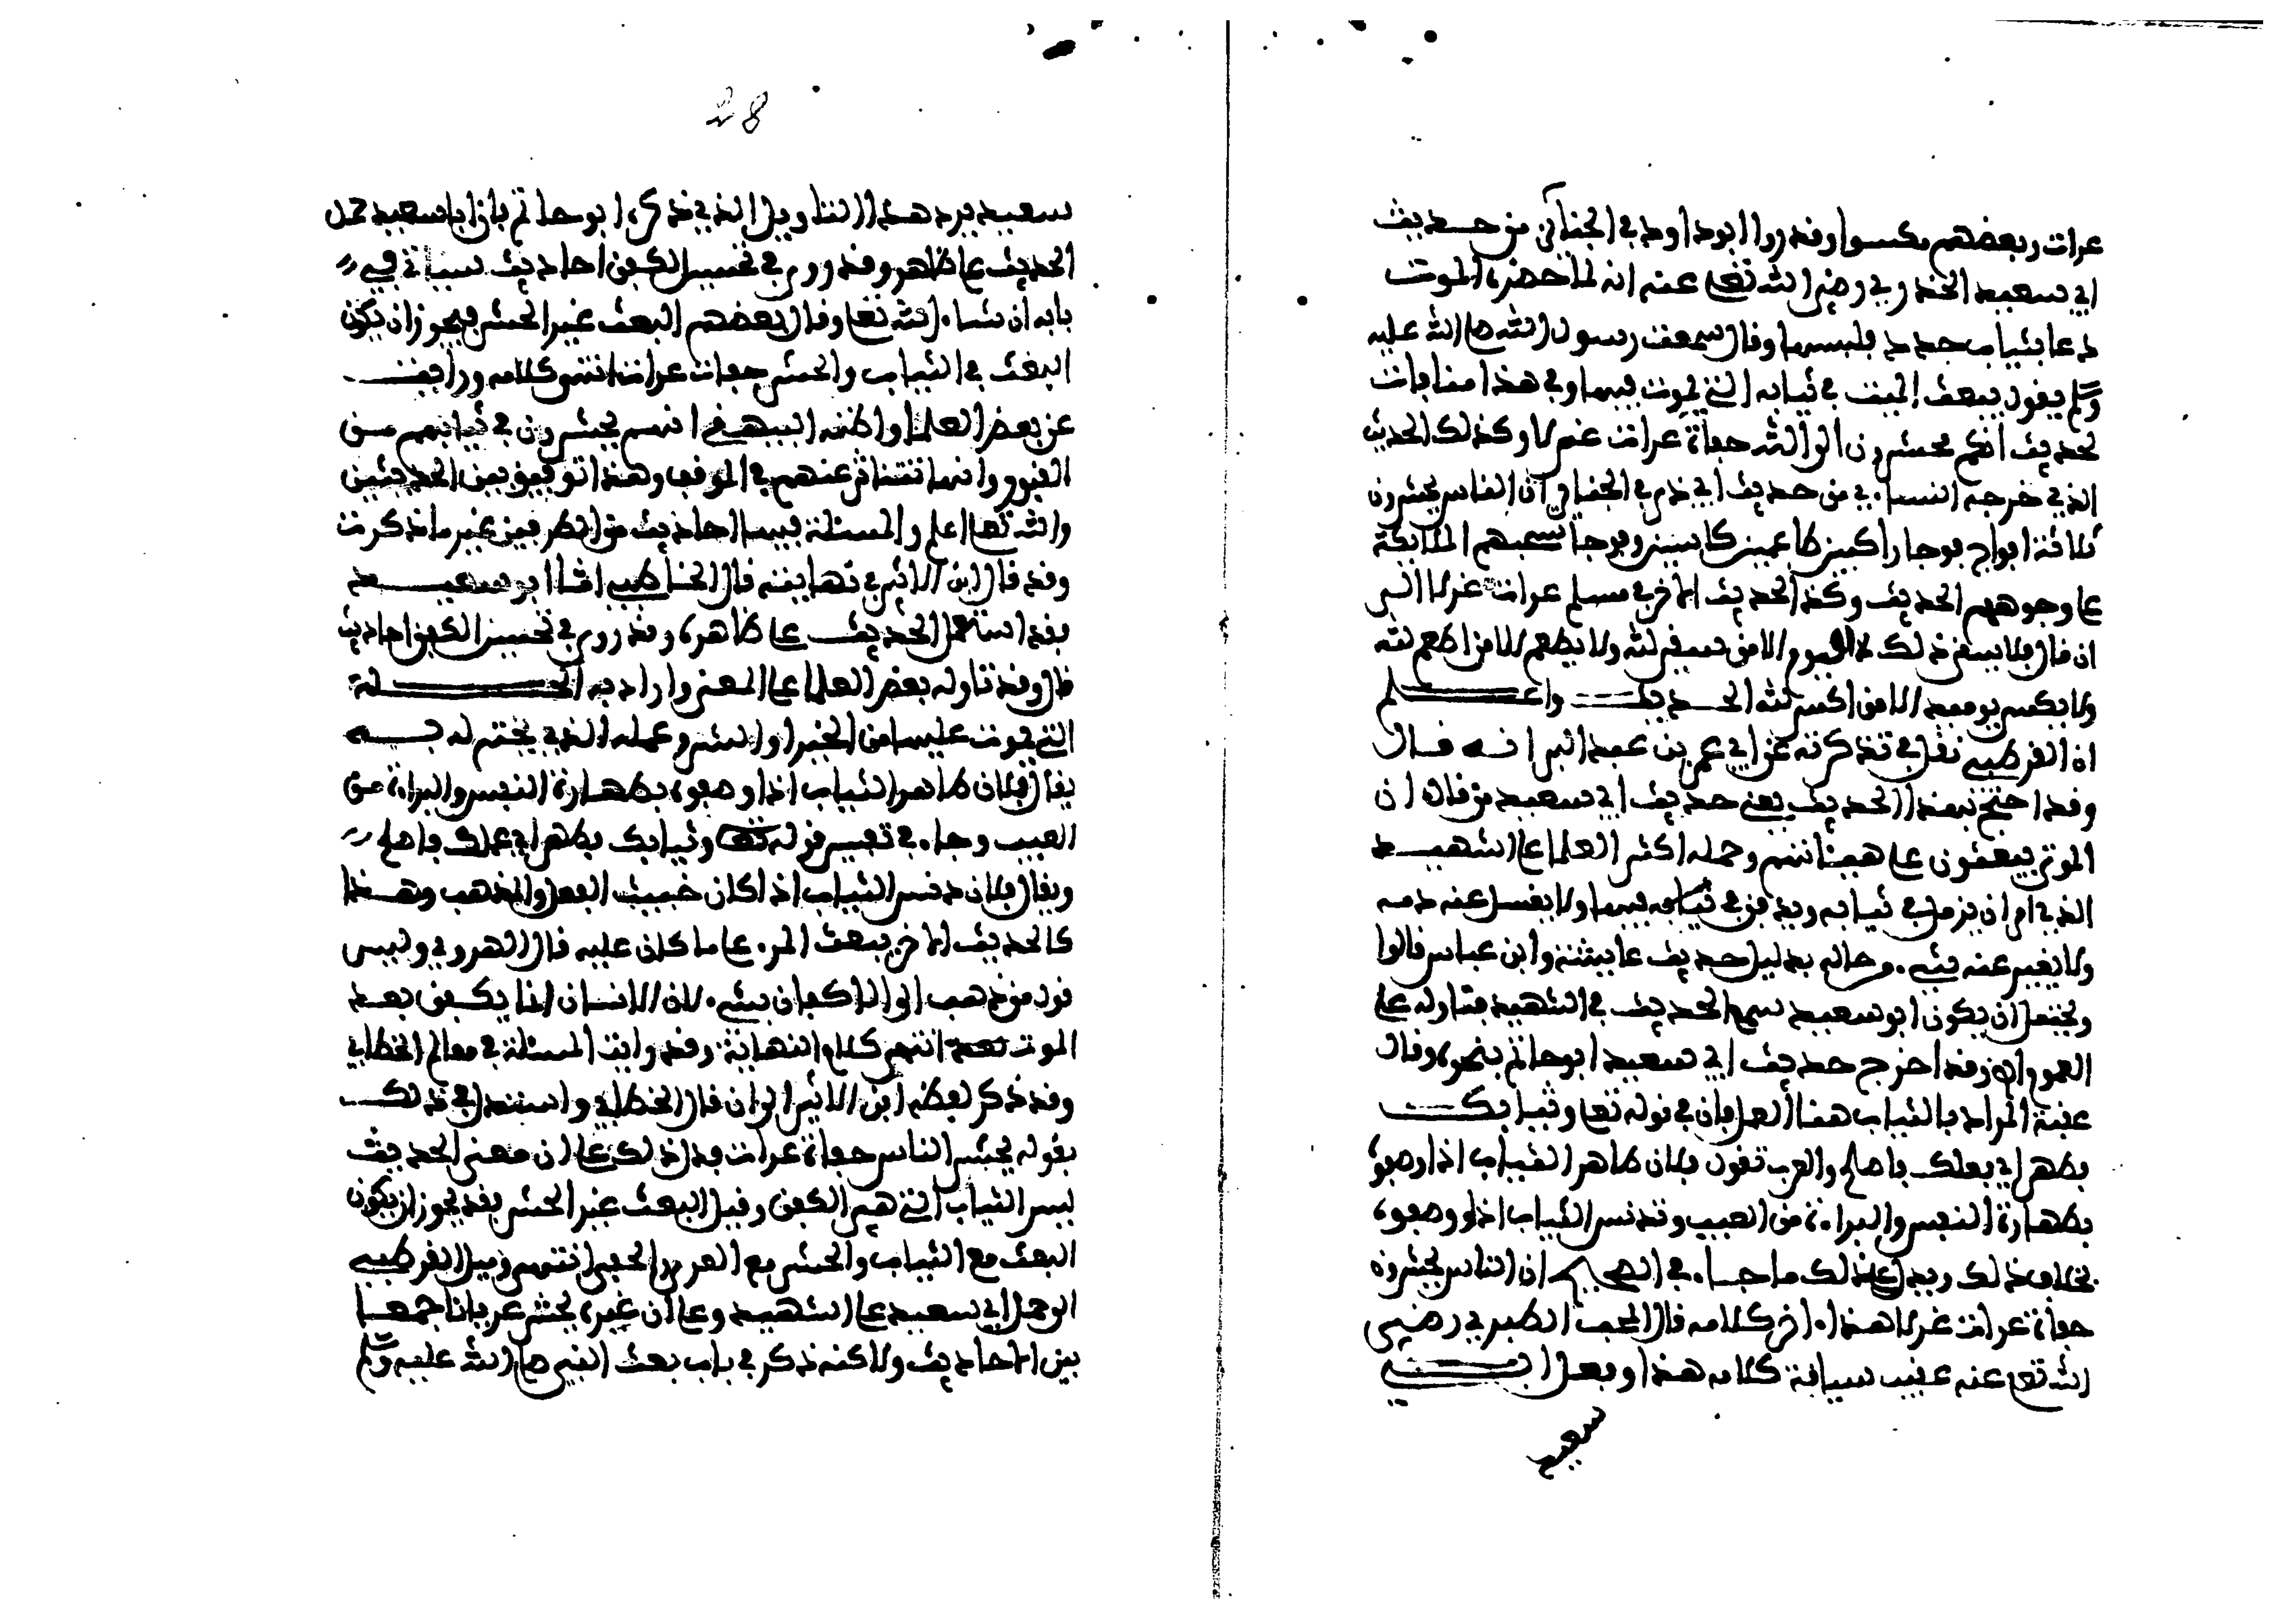 عراة وبعضهم بكسوا وقد روا ابو داود في الجنائز من حديث
ابي سعيد الخدري رضي الله تعلى عنه انه لما حضره الموت
دعا بثياب جدد فلبسها وقال سمعت رسول الله صلى الله عليه
وسلم يقول يبعث الميت في ثيابه التي يموت فيها وفي هذا منافات
لحديث انكم محشرون الى الله حفاة عرات غرلا وكذلك الحديث
الذي خرجه النساءي من حديث ابي ذر في الجنائز ان الناس يحشرون
ثلاثة افواج فوجا راكبين طاعمين كاسين وفوجا تسحبهم الملائكة
على وجوههم الحديث وكذا الحديث الاخر في مسلم عرات غرلا الى
ان قال فلا يسقى ذلك اليوم الا من سقى لله ولا يطعم الا من اطعم لله
ولا يكسى يومئذ الا من اكسى لله الحديث واعلم
ان القرطبي نقل في تذكرته عن ابي عمر بن عبد البر انه قال
وقد احتج بهذا الحديث يعني حديث ابي سعيد من قال ان
الموتى يبعثون على هيئاتهم وحمله اكثر العلما على الشهيد
الذي امر ان يزمل في ثيابه ويدفن في ثيابه فيها ولا يغسل عنه دمه
ولا يغير عنه شيء من حاله بدليل حديث عائشة وابن عباس قالوا
ويحتمل ان يكون ابو سعيد سمع الحديث في الشهيد فتاوله على
العموم وقد اخرج حديث ابي سعيد ابو حاتم بنحوه وقال
عقبة المراد بالثياب هنا العمل فان في قوله تعلى وثيابك
فطهر اي فعلك فاصلح والعرب تقول فلان طاهر الثياب اذا وصفوه
بطهارة النفس والبراءة من العيب وتدنس الثياب اذا وصفوه
بخلاف ذلك ويدل على ذلك ما جاء في الصحيح ان الناس يحشرون
حفاة عراة غرلا هذا اخر كلامه قال المحب الطبري رضي
الله تعلى عنه عقيب سياقة كلامه هذا وفعل ابي
سعيد
28
سعيد يرد هذا التاويل الذي ذكره ابو حاتم فان ابا سعيد حمل
الحديث على ظاهره وقد روي في تحسين الكفن احاديث سياتي في
بابه ان شاء الله تعلى وقال بعضهم البعث غير الحشر فيجوز ان يكون
البعث في الثياب والحشر حفات عرات انتهى كلامه ورايت
عن بعض العلما واظنه البيهقي انهم يحشرون في ثيابهم من
القبور وانها تتناثر عنهم في الموقف وهذا توفيق بين الحديثين
والله تعلى اعلم والمسئلة فيها احاديث من الطرفين غير ما ذكرت
وقد قال ابن الاثير في نهايته قال الخطابي اما ابو سعيد
فقد استعمل الحديث على ظاهره وقد روي في تحسين الكفن احاديث
قال وقد تاوله بعض العلما على المعنى واراد به الحالة
التي يموت عليها من الخير او الشر وعمله الذي يختم له به
يقال فلان طاهر الثياب اذا وصفوه بطهارة النفس والبراءة من
العيب وجاء في تفسير قوله تعلى وثيابك فطهر اي عملك فاصلح
ويقال فلان دنس الثياب اذا كان خبيث الفعل والمذهب وهذا
كالحديث الاخر يبعث المرء على ما كان عليه قال الهروي وليس
قول من ذهب الى الاكفان بشيء لان الانسان انما يكفن بعد
الموت انتهى كلام النهاية وقد رايت المسئلة في معالم الخطابي
وقد ذكر لفظه ابن الاثير الى ان قال الخطابي واستدل في ذلك
بقوله يحشر الناس حفاة عراة فدل ذلك على ان معنى الحديث
ليس الثياب التي هي الكفن وقيل البعث غير الحشر فقد يجوز ان يكون
البعث مع الثياب والحشر مع العري والحفي انتهى وميل القرطبي
الى حمل ابي سعيد على الشهيد وعلى ان غيره يحشر عريانا جمعا
بين الاحاديث ولاكنه ذكر في باب بعث النبي صلى الله عليه وسلم